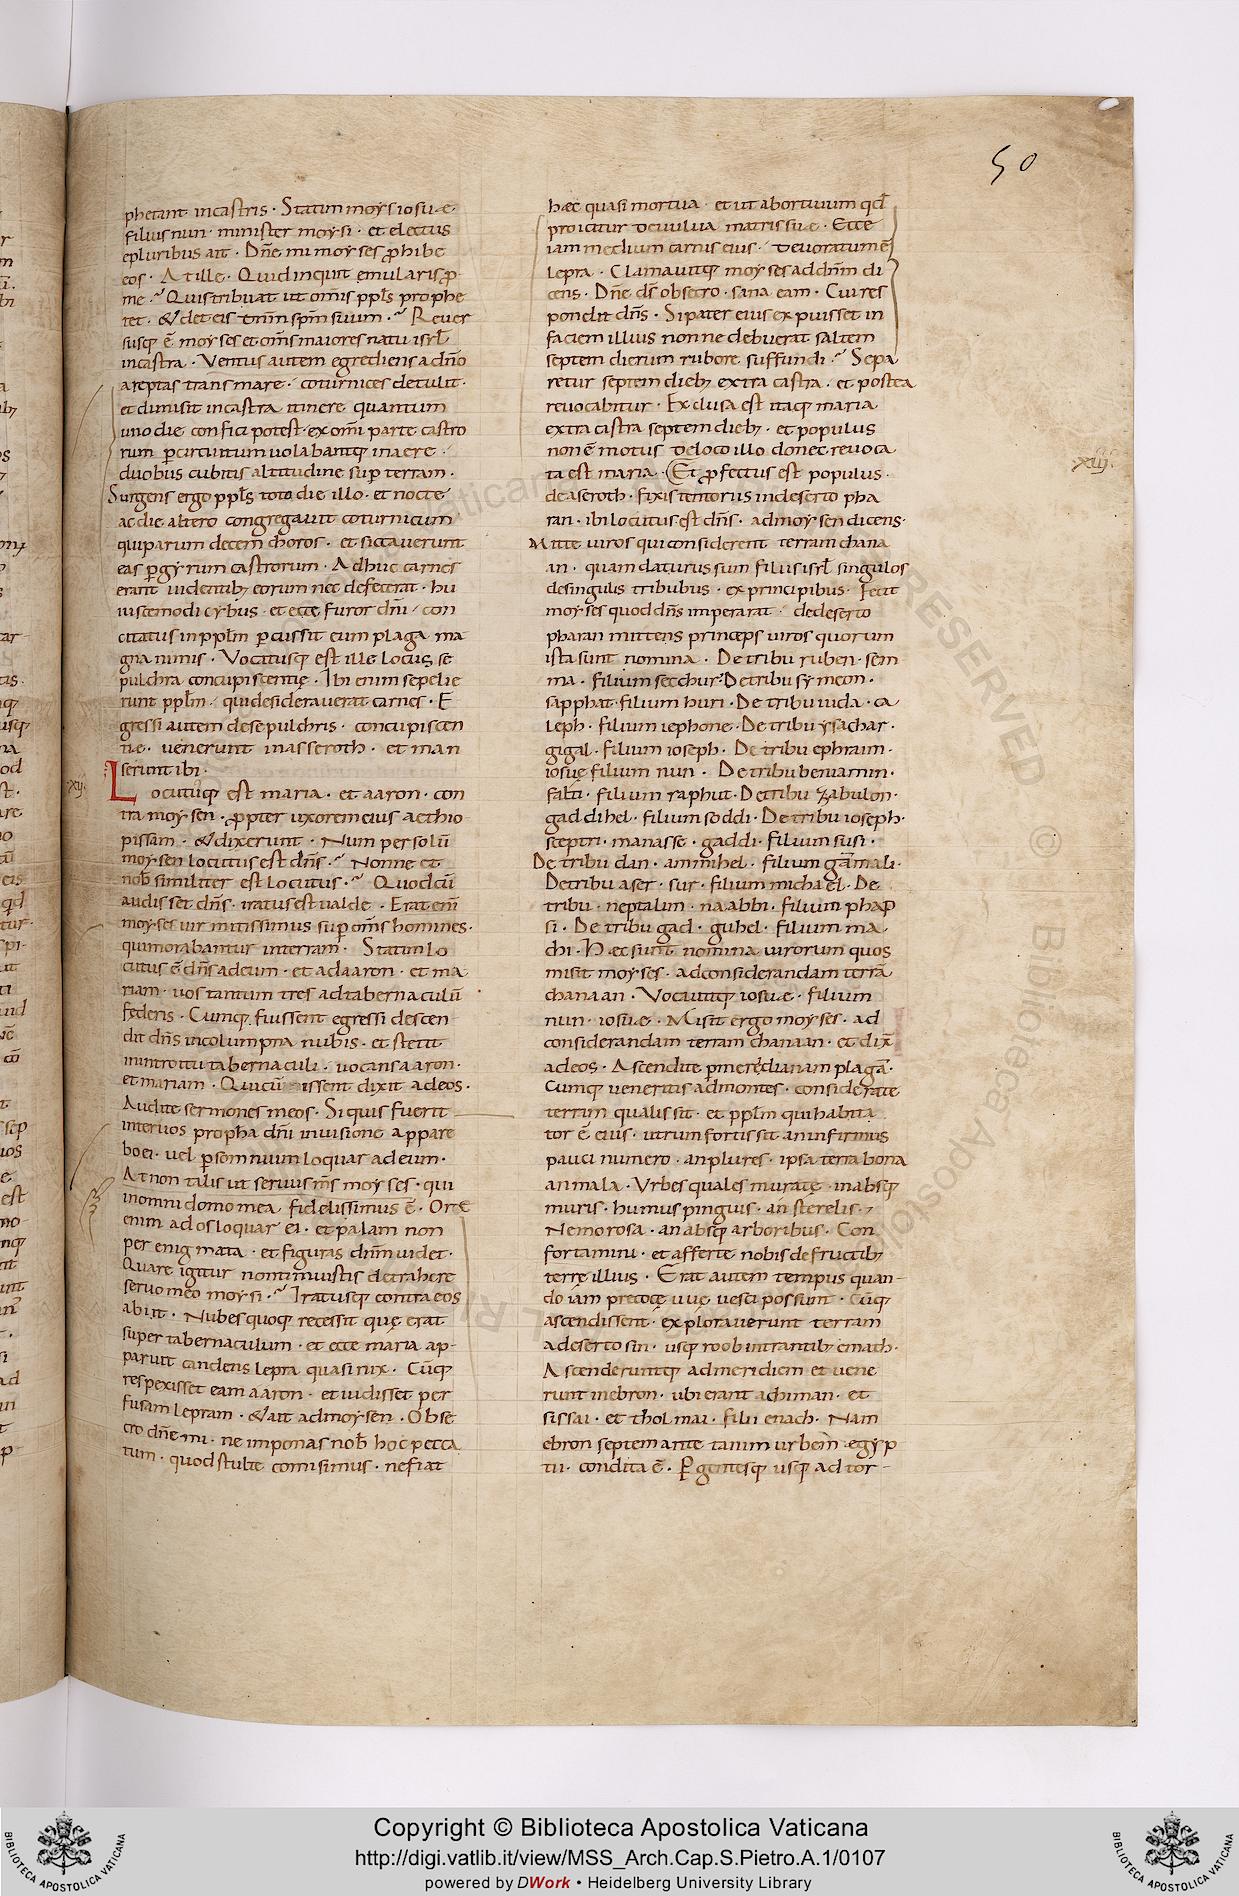 50
phetant incastris · Statim moyſi ioſu·e·
filius nun · minister moyſi · et electus
epluribus ait · Dn̄e mi moyſes ꝓhibe
eos · Atille · Quid inquit emularis ꝓ
me · Quis tribuat ut om̄is ppl̄s prophe
tet · & det eis dn̄s sp̄m suum · Reuer
susq̨ ē moyſes et om̄s maiores natu isrl̄
incastra · Ventus autem egrediens a dn̄o
areptas trans mare · coturnices detulit ·
et dimisit incastra itinere quantum
uno die confici potest · ex om̄i parte castro
rum ꝑ circuitum uolabantq̨ inaere ·
duobus cubitis altitudine suꝑ terram ·
Surgens ergo ppl̄s toto die illo · et nocte
ac die altero congregauit coturnicum
qui parum decem choros · et siccauerunt
eas ꝑ gyrum castrorum · Adhuc carnes
erant indentib; eorum nec defecerat · hu
iuscemodi cybus · et ecce furor dn̄i con
citatus inppl̄m ꝑcussit eum plaga ma
gna nimis · Vocatusq̨ est ille locus se
pulchra concupiscentię · Ibi enim sepelie
runt ppl̄m · qui desiderauerat carnes · E
gressi autem desepulchris · concupiscen
tie · uenerunt inasseroth · et man
serunt ibi ·
xij.
Locutaq̨ est maria · et aaron · con
tra moyſen · ꝓpter uxorem eius aethio
pissam · & dixerunt · Num per solū
moyſen locutus est dn̄s · Nonne et
nob̄ similiter est locutus · Quod cū
audisset dn̄s · iratus est ualde · Erat enī
moyſes uir mitissimus suꝑ om̄s homines ·
qui morabantur interram · Statim lo
cutus ē dn̄s adeum · et ad aaron · et ma
riam · uos tantum tres ad tabernaculū
federis · Cumq̨ fuissent egressi descen
dit dn̄s incolumpna nubis · et stetit
inintroitu tabernaculi · uocans aaron ·
et mariam · Qui cū issent dixit adeos ·
Audite sermones meos · Si quis fuerit
inter uos propha dn̄i inuisione appare
bo ei · uel ꝑ somnium loquar ad eum ·
At non talis ut seruus m̄s moyſes · qui
inomni domo mea fidelissimus ē · Ore
enim ad os loquar ei · et palam non
per enigmata · et figuras dn̄m uidet ·
Quare igitur non timuistis detrahere
seruo meo moyſi · Iratusq̨ contra eos
abiit · Nubes quoq̨ recessit quę erat
super tabernaculum · et ecce maria ap-
paruit candens lepra quasi nix · Cūq̨
respexisset eam aaron · et uidisset per
fusam lepram · & ait ad moyſen · Obse
cro dn̄e mi · ne imponas nob̄ hoc pecca
tum · quod stulte comisimus · ne fiat
hæc quasi mortua · et ut abortiuum qd̄
proicitur deuulua matris su·e · Ecce
iam medium carnis eius · deuoratum ē
lepra · Clamauitq̨ moyſes ad dn̄m di
cens · Dn̄e ds̄ obsecro · sana eam · Cui res
pondit dn̄s · Si pater eius expuisset in
faciem illius nonne debuerat saltem
septem dierum rubore suffundi · Sepa
retur septem dieb; extra castra · et postea
reuocabitur · Exclusa est itaq̨ maria
extra castra septem dieb; · et populus
non ē motus deloco illo donec reuoca
ta est maria · Et ꝓfectus est populus ·
xiij.
deaseroth · fixis tentoriis indeserto pha
ran · ibi locutus est dn̄s · ad moyſen dicens ·
Mitte uiros qui considerent terram chana
an · quam daturus sum filiis isrl̄ singulos
desingulis tribubus · ex principibus · Fecit
moyſes quod dn̄s imperarat · dedeserto
pharan mittens princeps uiros quorum
ista sunt nomina · De tribu ruben · sem
ma · filium secchur · De tribu symeon ·
sapphat · filium huri · De tribu iuda · ca
leph · filium iephone · De tribu ysachar ·
gigal · filium ioseph · De tribu ephraim ·
iosuę filium nun · De tribu beniamin ·
falti · filium raphut · De tribu zabulon ·
gaddihel · filium soddi · De tribu ioseph ·
sceptri · manasse · gaddi · filium susi ·
De tribu dan · ammihel · filium gamali ·
De tribu aser · sur · filium michael · De
tribu · neptalim · naabbi · filium phap
si · De tribu gad · guhel · filium ma ·
chi · Hæc sunt nomina uirorum quos
misit moyſes · ad considerandam terrā
chanaan · Vocauitq̨ iosu·e · filium
nun · iosu·e · Misit ergo moyſes · ad
considerandam terram chanaan · et dix̄
adeos · Ascendite ꝑ meredianam plagā ·
Cumq̨ ueneritis ad montes · considerate
terram qualis sit · et ppl̄m qui habita
tor ē eius · utrum fortis sit an infirmus
pauci numero · an plures · ipsa terra bona
an mala · Vrbes quales muratę · inabsq̨
muris · humus pinguis · an sterelis ·
Nemorosa · an absq̨ arboribus · Con
fortamini · et afferte nobis defructib;
terrę illius · Erat autem tempus quan-
do iam precocę uuę uesci possunt · Cūq̨
ascendissent · explorauerunt terram
adeserto sin · usq̨ roob intrantib; emath ·
Ascenderuntq̨ ad meridiem et uene
runt inebron · ubi erant achiman · et
sissai · et tholmai · filii enach · Nam
ebron septem ante tanim urbem egyp
tii · condita ē · Ꝑgentesq̨ usq̨ ad tor-
Copyright © Biblioteca Apostolica Vaticana
http://digi.vatlib.it/view/MSS_Arch.Cap.S.Pietro.A.1/0107
powered by DWork • Heidelberg University Library
BIBLIOTECA APOSTOLICA VATICANA
BIBLIOTECA APOSTOLICA VATICANA